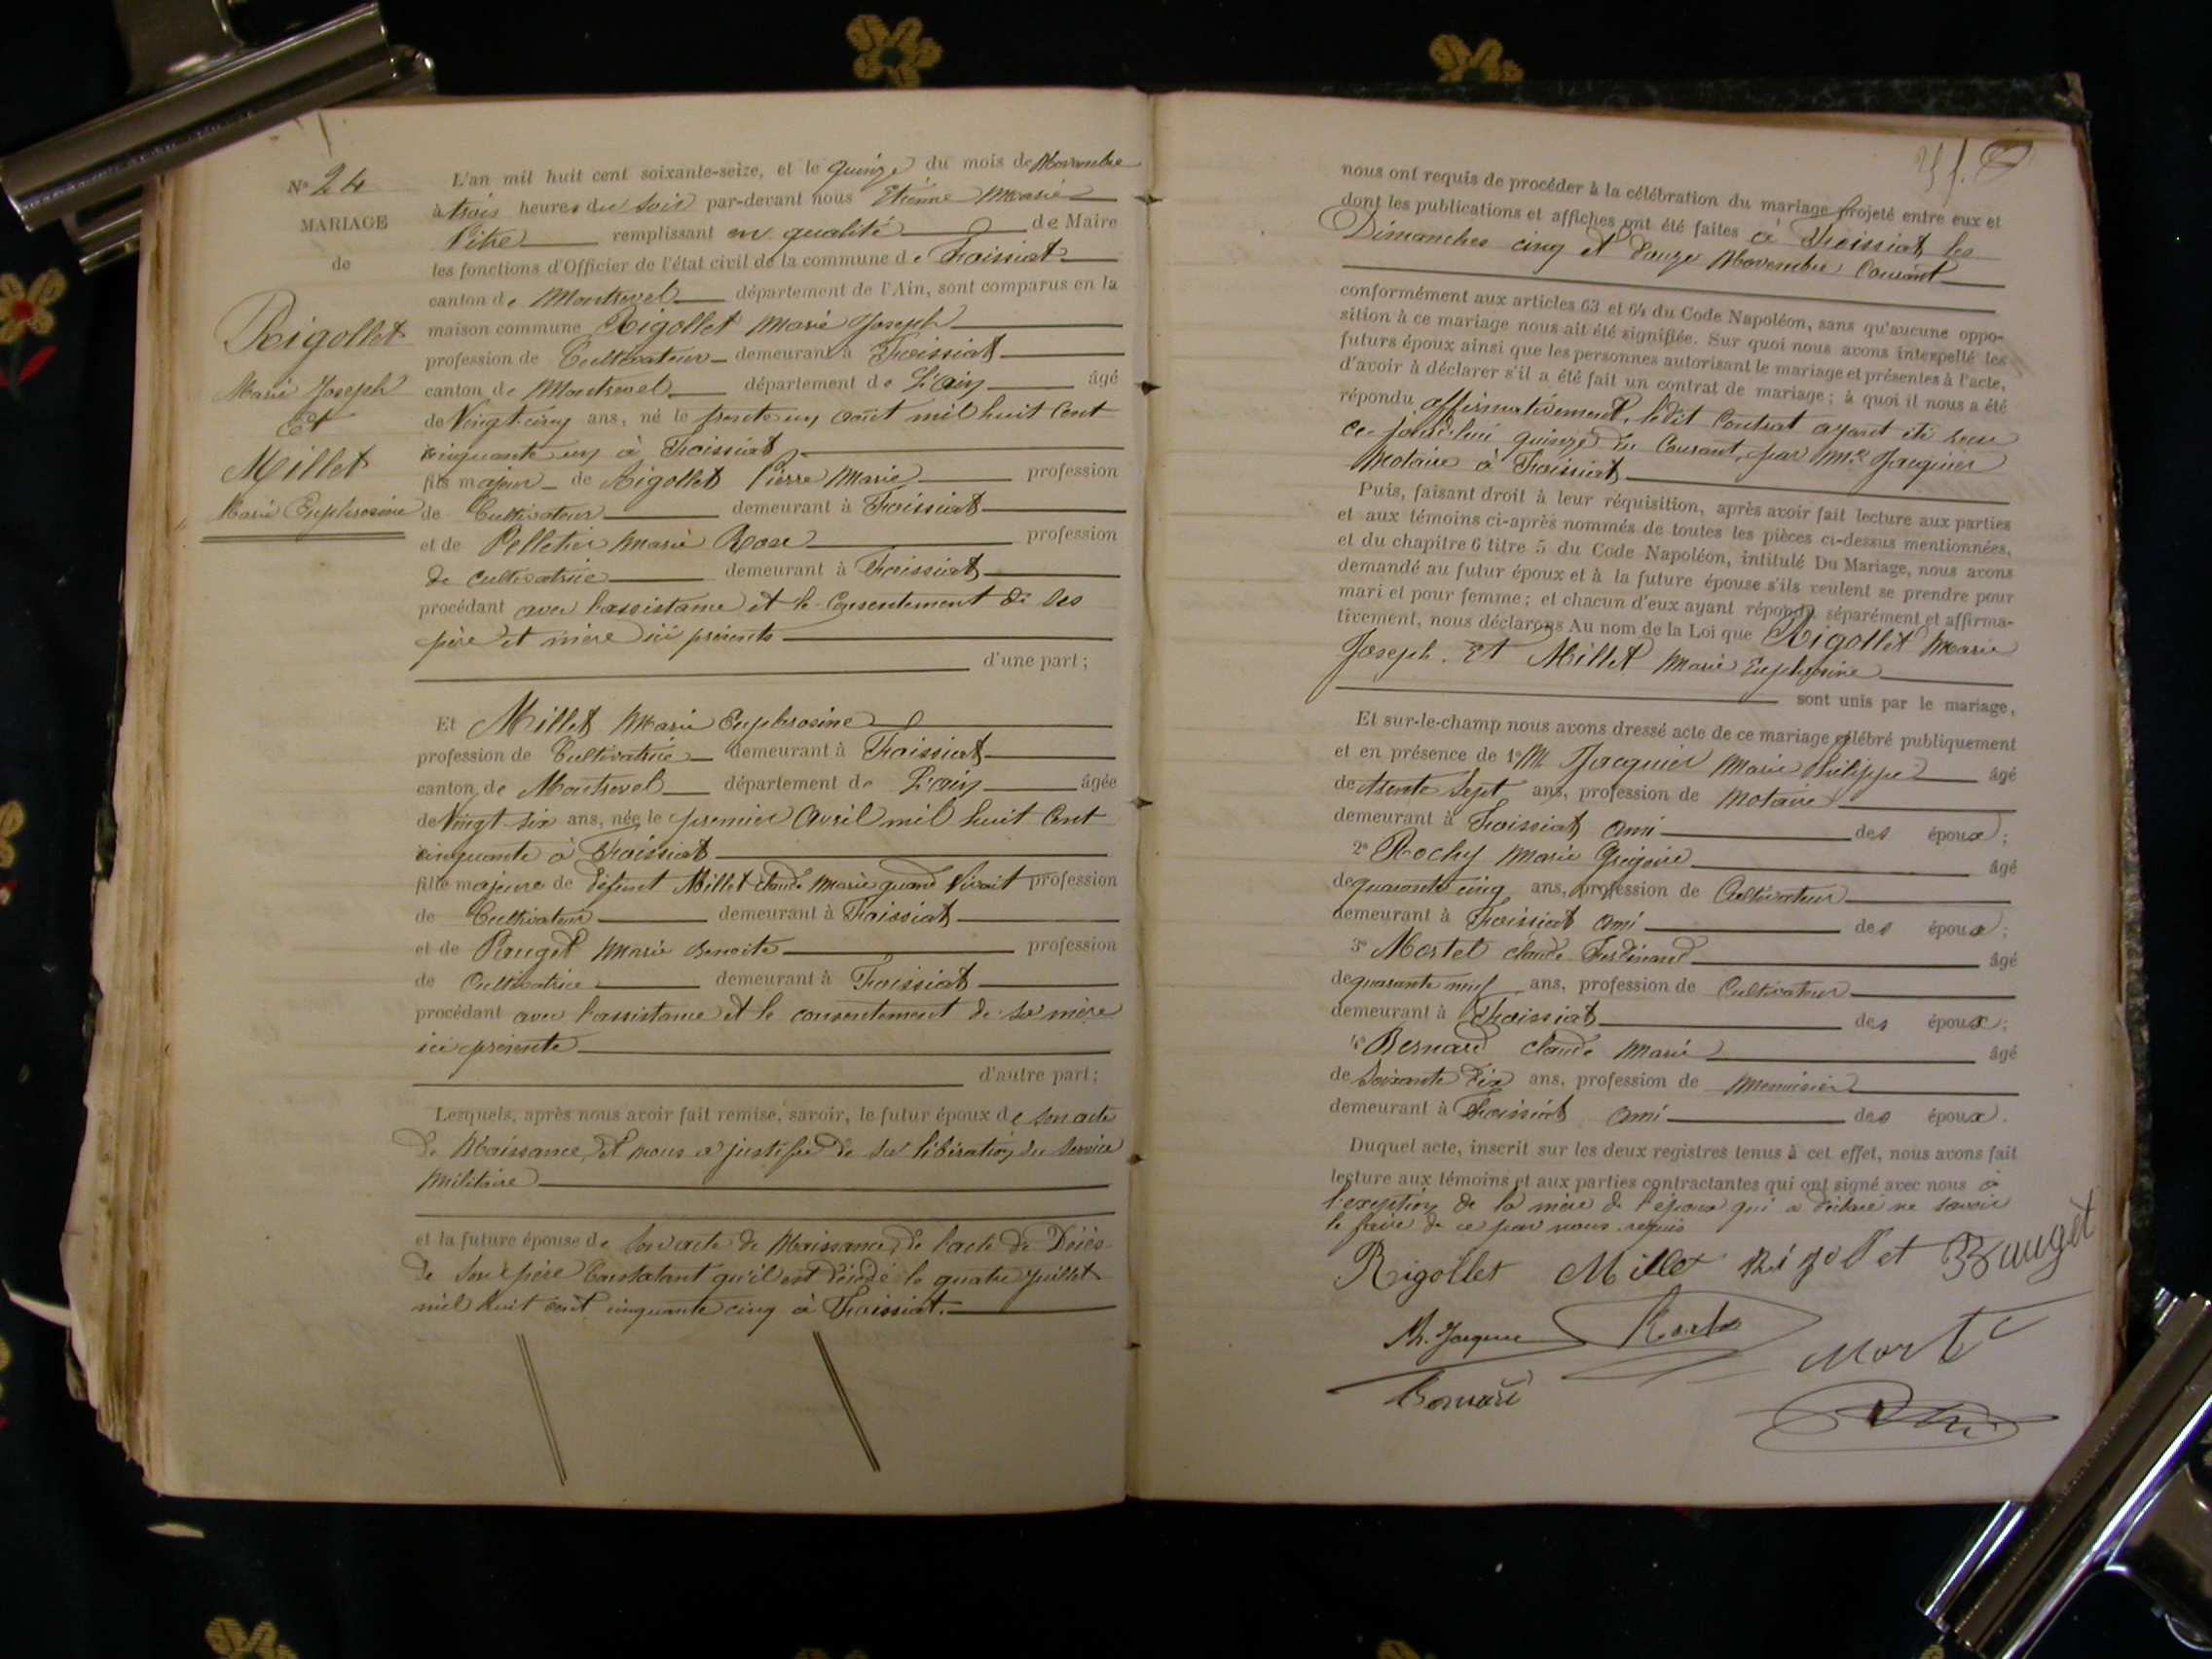 N° 24
MARIAGE
de
Rigollet
Marie Joseph
Et
Millet
Marie Euphrosine
L'an mil huit cent soixante-seize, et le quinze du mois de Novembre
à trois heures du soir par-devant nous Etienne Marie
Pitre remplissant en qualité de Maire
les fonctions d'Officier de l'état civil de la commune de Foissiat
canton de Montrevel département de l'Ain, sont comparus en la
maison commune Rigollet Marie Joseph
profession de Cultivateur demeurant à Foissiat
canton de Montrevel département de L'ain âgé
de Vingt-cinq ans, né le trente un août mil huit Cent
cinquante un à Foissiat
fils majeur de Rigollet Pierre Marie profession
de Cultivateur demeurant à Foissiat
et de Pelletier Marie Rose profession
de cultivatrice demeurant à Foissiat
procédant avec l'assistance et le Consentement de ses
père et mère ici présents
d'une part ;
Et Millet Marie Euphrosine
profession de Cultivatrice demeurant à Foissiat
canton de Montrevel département de L'ain âgée
de Vingt-six ans, née le premier Avril mil huit Cent
cinquante à Foissiat
fille majeure de défunt Millet claude Marie quand vivait profession
de Cultivateur demeurant à Foissiat
et de Pauget Marie Benoite profession
de Cultivatrice demeurant à Foissiat
procédant avec l'assistance et le consentement de sa mère
ici présente
d'autre part ;
Lesquels, après nous avoir fait remise, savoir, le futur époux de son acte
de Naissance, et nous a justifié de sa libération du service
militaire
et la future épouse de son acte de Naissance, de l'acte de Décès
de son père Constatant qu'il est décédé le quatre juillet
mil huit cent cinquante cinq à Foissiat.
nous ont requis de procéder à la célébration du mariage projeté entre eux et
dont les publications et affiches ont été faites à Foissiat les
Dimanches cinq et douze Novembre Courant
conformément aux articles 63 et 64 du Code Napoléon, sans qu'aucune oppo-
sition à ce mariage nous ait été signifiée. Sur quoi nous avons interpellé les
futurs époux ainsi que les personnes autorisant le mariage et présentes à l'acte,
d'avoir à déclarer s'il a été fait un contrat de mariage ; à quoi il nous a été
répondu affirmativement, ledit Contrat ayant été reçu
ce jourd'hui quinze du Courant, par Me Jacquier
Notaire à Foissiat
Puis, faisant droit à leur réquisition, après avoir fait lecture aux parties
et aux témoins ci-après nommés de toutes les pièces ci-dessus mentionnées,
et du chapitre 6 titre 5 du Code Napoléon, intitulé Du Mariage, nous avons
demandé au futur époux et à la future épouse s'ils veulent se prendre pour
mari et pour femme ; et chacun d'eux ayant répondu séparément et affirma-
tivement, nous déclarons Au nom de la Loi que Rigollet Marie
Joseph. Et Millet Marie Euphrosine
sont unis par le mariage,
Et sur-le-champ nous avons dressé acte de ce mariage célébré publiquement
et en présence de 1° M. Jacquier Marie Philippe âgé
de trente Sept ans, profession de Notaire
demeurant à Foissiat ami des époux ;
2° Rochy Marie Grégoire âgé
de quarante cinq ans, profession de Cultivateur
demeurant à Foissiat ami des époux ;
3° Mortel claude Ferdinand âgé
de quarante neuf ans, profession de Cultivateur
demeurant à Foissiat des époux ;
4° Bernard claude Marie âgé
de soixante dix ans, profession de Menuisier
demeurant à Foissiat ami des époux.
Duquel acte, inscrit sur les deux registres tenus à cet effet, nous avons fait
lecture aux témoins et aux parties contractantes qui ont signé avec nous à
l'exeption de la mère de l'époux qui a déclaré ne savoir
le faire de ce par nous requis
Rigollet Millet Rigollet Pauget
Ph. Jacquier
Bernard